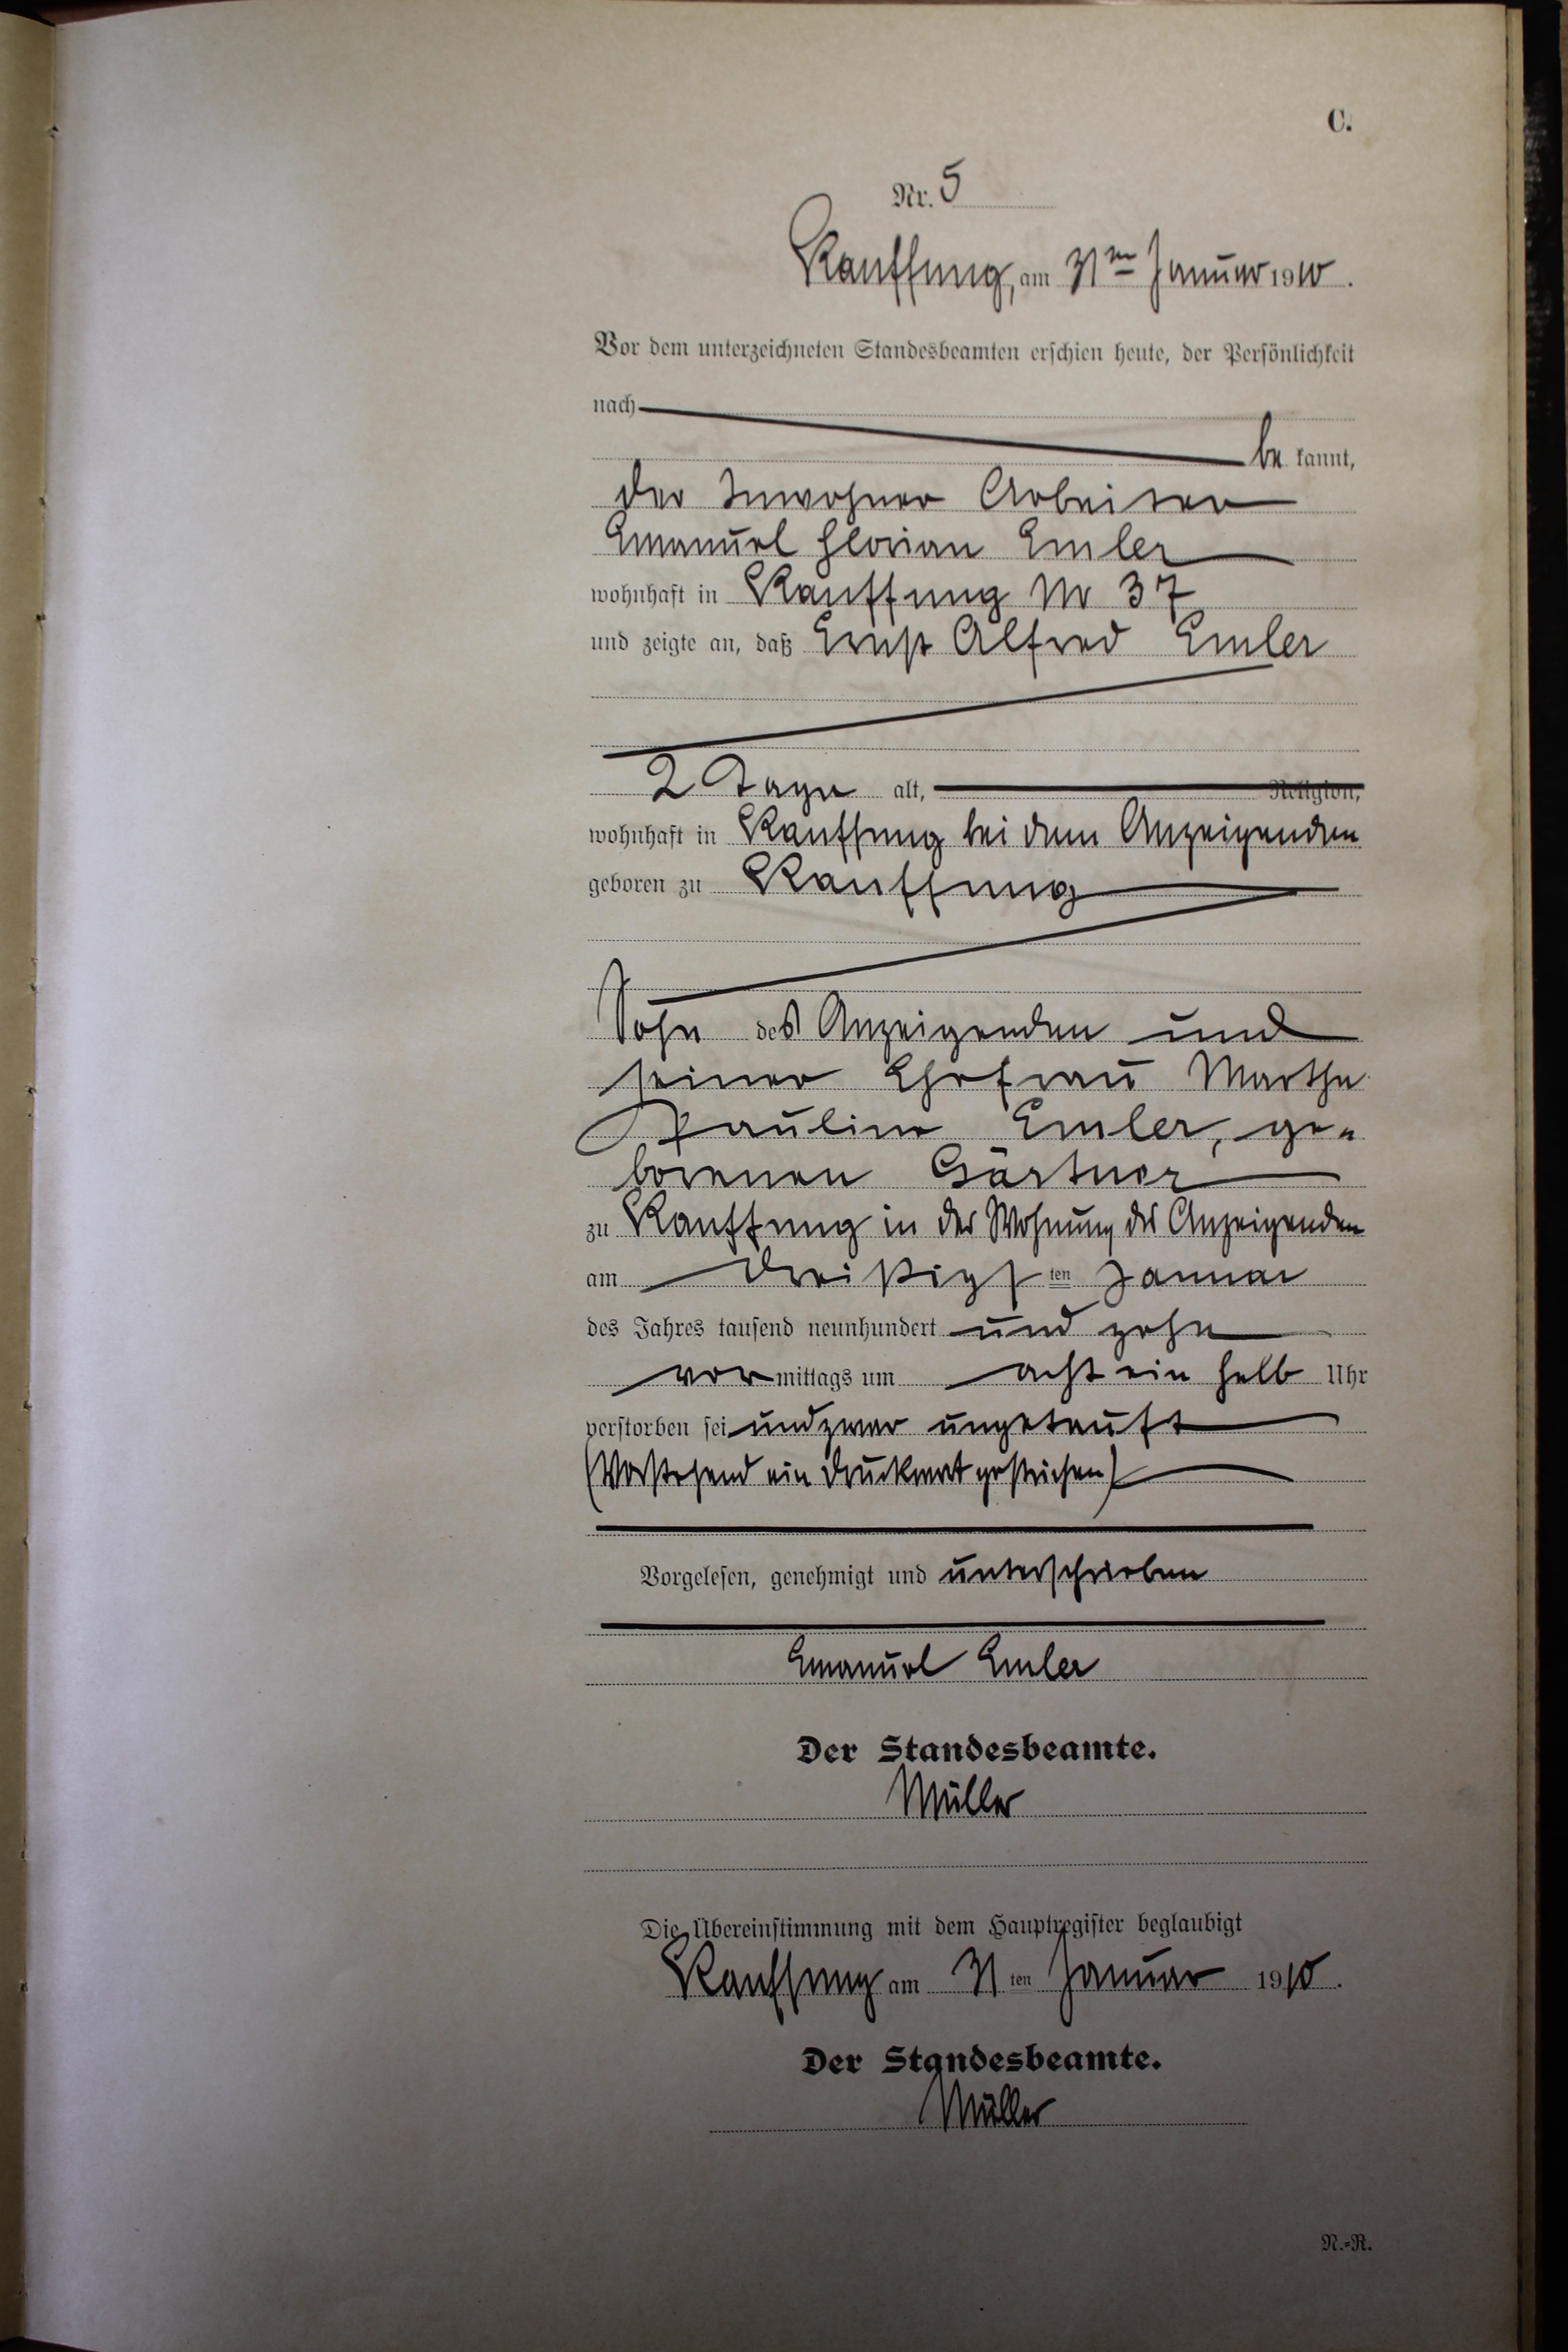 C.
Nr. 5
Kauffung, am 31ten Januar 1910.
Vor dem unterzeichneten Standesbeamten erschien heute, der Persönlichkeit
nach
be kannt,
der Inwohner Arbeiter
Emanuel Florian Emler
wohnhaft in Kauffung Nr 37
und zeigte an, daß Ernst Alfred Emler
2 Tage alt, Religion,
wohnhaft in Kauffung bei dem Anzeigenden
geboren zu Kauffung
Sohn des Anzeigenden und
seiner Ehefrau Martha
Pauline Emler, ge-
borenen Gärtner
zu Kauffung in der Wohnung des Anzeigenden
am dreißigsten Januar
des Jahres tausend neunhundert und zehn
vormittags um acht ein halb Uhr
verstorben sei und zwar ungetauft
(Vorstehend ein Druckwort gestrichen)
Vorgelesen, genehmigt und unterschrieben
Emanuel Emler
Der Standesbeamte.
Müller
Die Übereinstimmung mit dem Hauptregister beglaubigt
Kauffung am 31ten Januar 1910.
Der Standesbeamte.
Müller
N.-R.